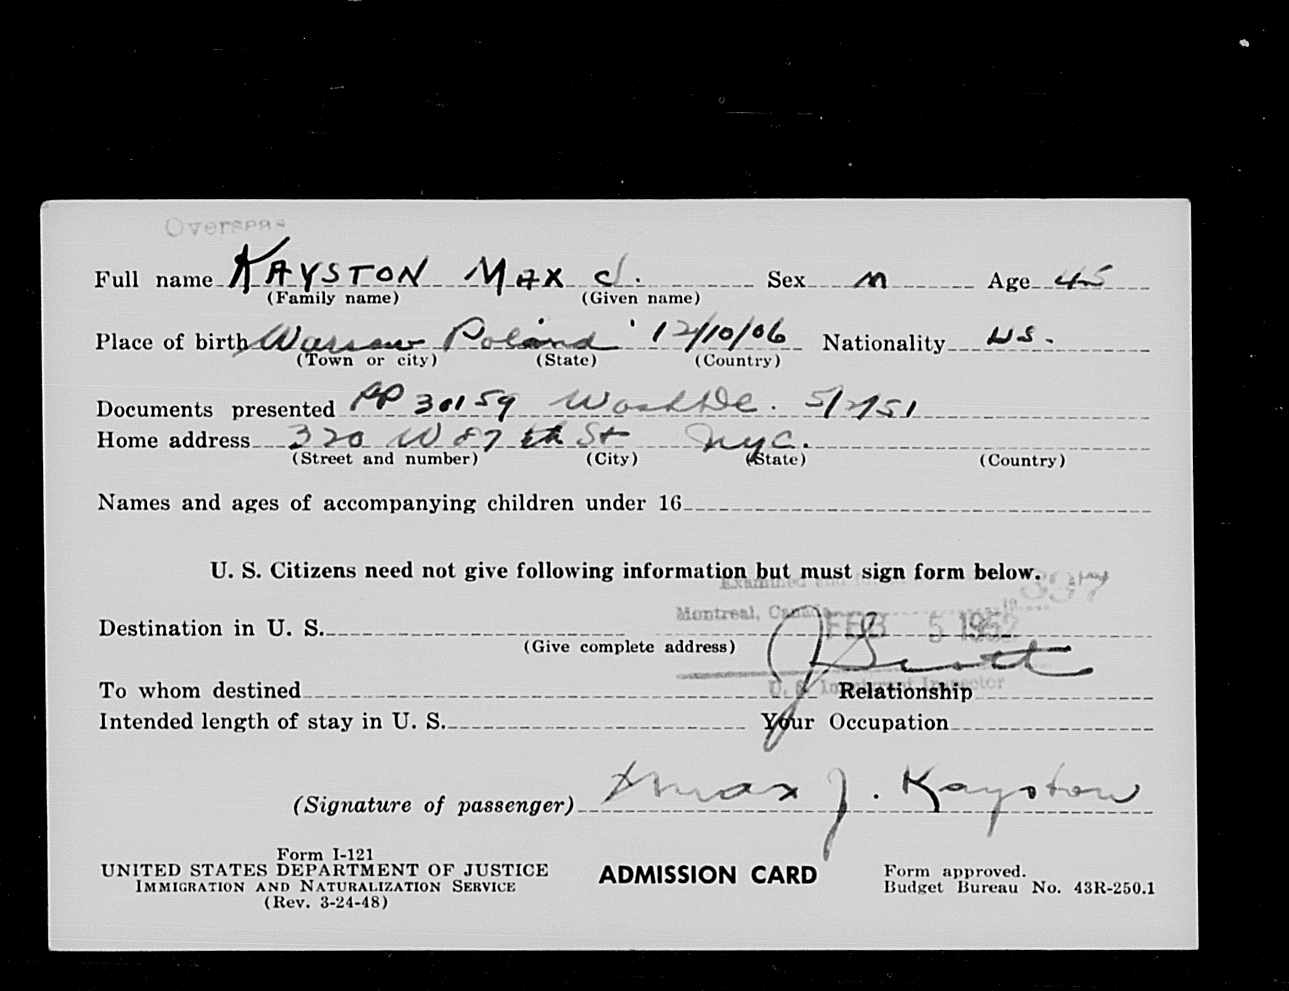 Overseas
Full name KAYSTON MAX J. Sex M Age 45
(Family name) (Given name)
Place of birth Warsaw Poland 12/10/06 Nationality US.
(Town or city) (State) (Country)
Documents presented PP 30159 Wash DC. 5/2/51
Home address 320 W 87 th St NYC.
(Street and number) (City) (State) (Country)
Names and ages of accompanying children under 16
U. S. Citizens need not give following information but must sign form below.
Examined and
Montreal, Canada 19
Destination in U. S. FEB 5 1952
(Give complete address)
J Scott
U. S. Immigrant Inspector
To whom destined Relationship
Intended length of stay in U. S. Your Occupation
(Signature of passenger) Max J. Kayston
Form I-121
UNITED STATES DEPARTMENT OF JUSTICE
IMMIGRATION AND NATURALIZATION SERVICE
(Rev. 3-24-48)
ADMISSION CARD
Form approved.
Budget Bureau No. 43R-250.1